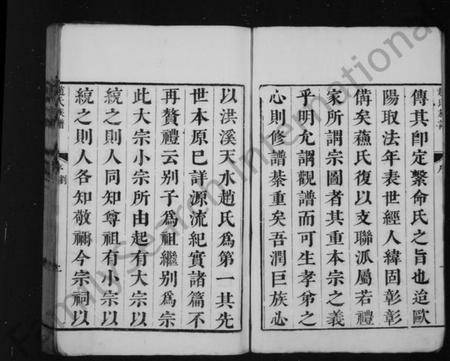 傳其即定繫命氏之旨也迨歐
陽取法年表世經人緯固彰彰
備矣蘓氏復以支聯派屬若禮
家所謂宗圖者其重本宗之義
乎明允謂觀譜而可生孝弟之
心則修譜綦重矣吾潤巨族必
以洪溪天水趙氏爲第一其先
世本原已詳源流紀實諸篇不
再贅禮云别子爲祖繼别爲宗
此大宗小宗所由起有大宗以
統之則人同知尊祖有小宗以
統之則人各知敬禰今宗祠以
趙氏族譜
FamilySearch International